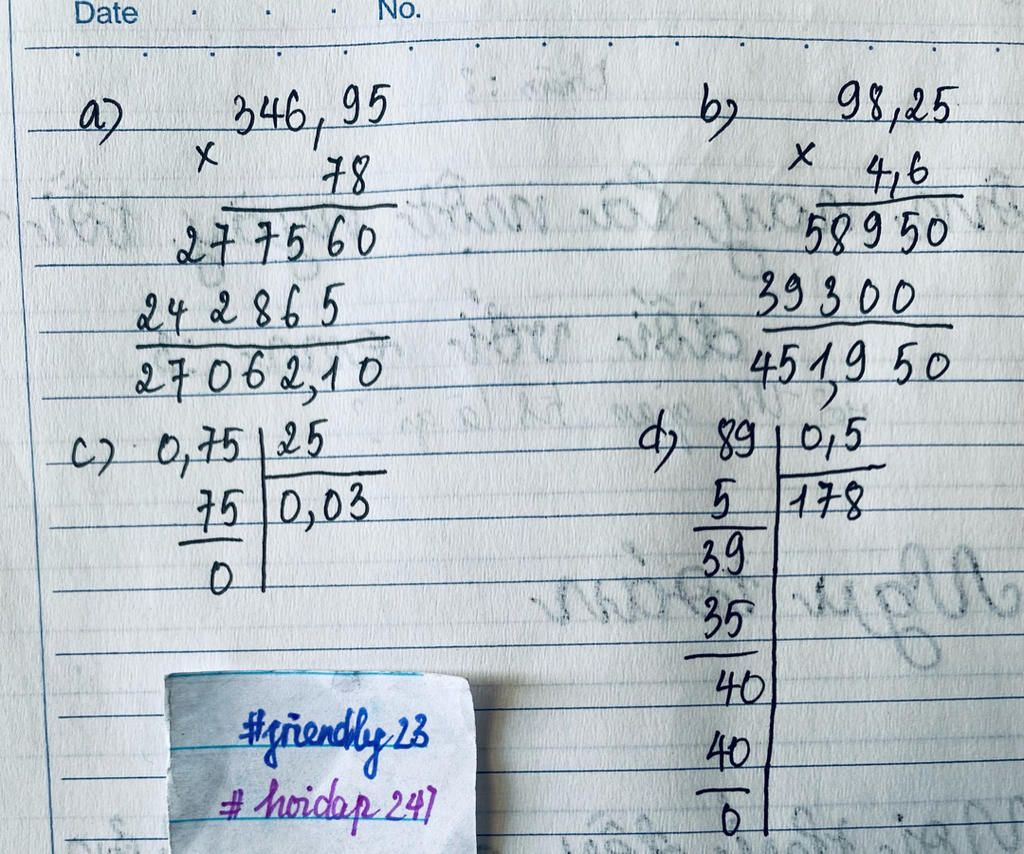 Date . . . No.
a) 346,95
x 78
277560
242865
27062,10
b) 98,25
x 4,6
58950
39300
451,950
c) 0,75 25
75 0,03
0
d) 89 0,5
5 178
39
35
40
40
0
#friendly23
#hoidap247